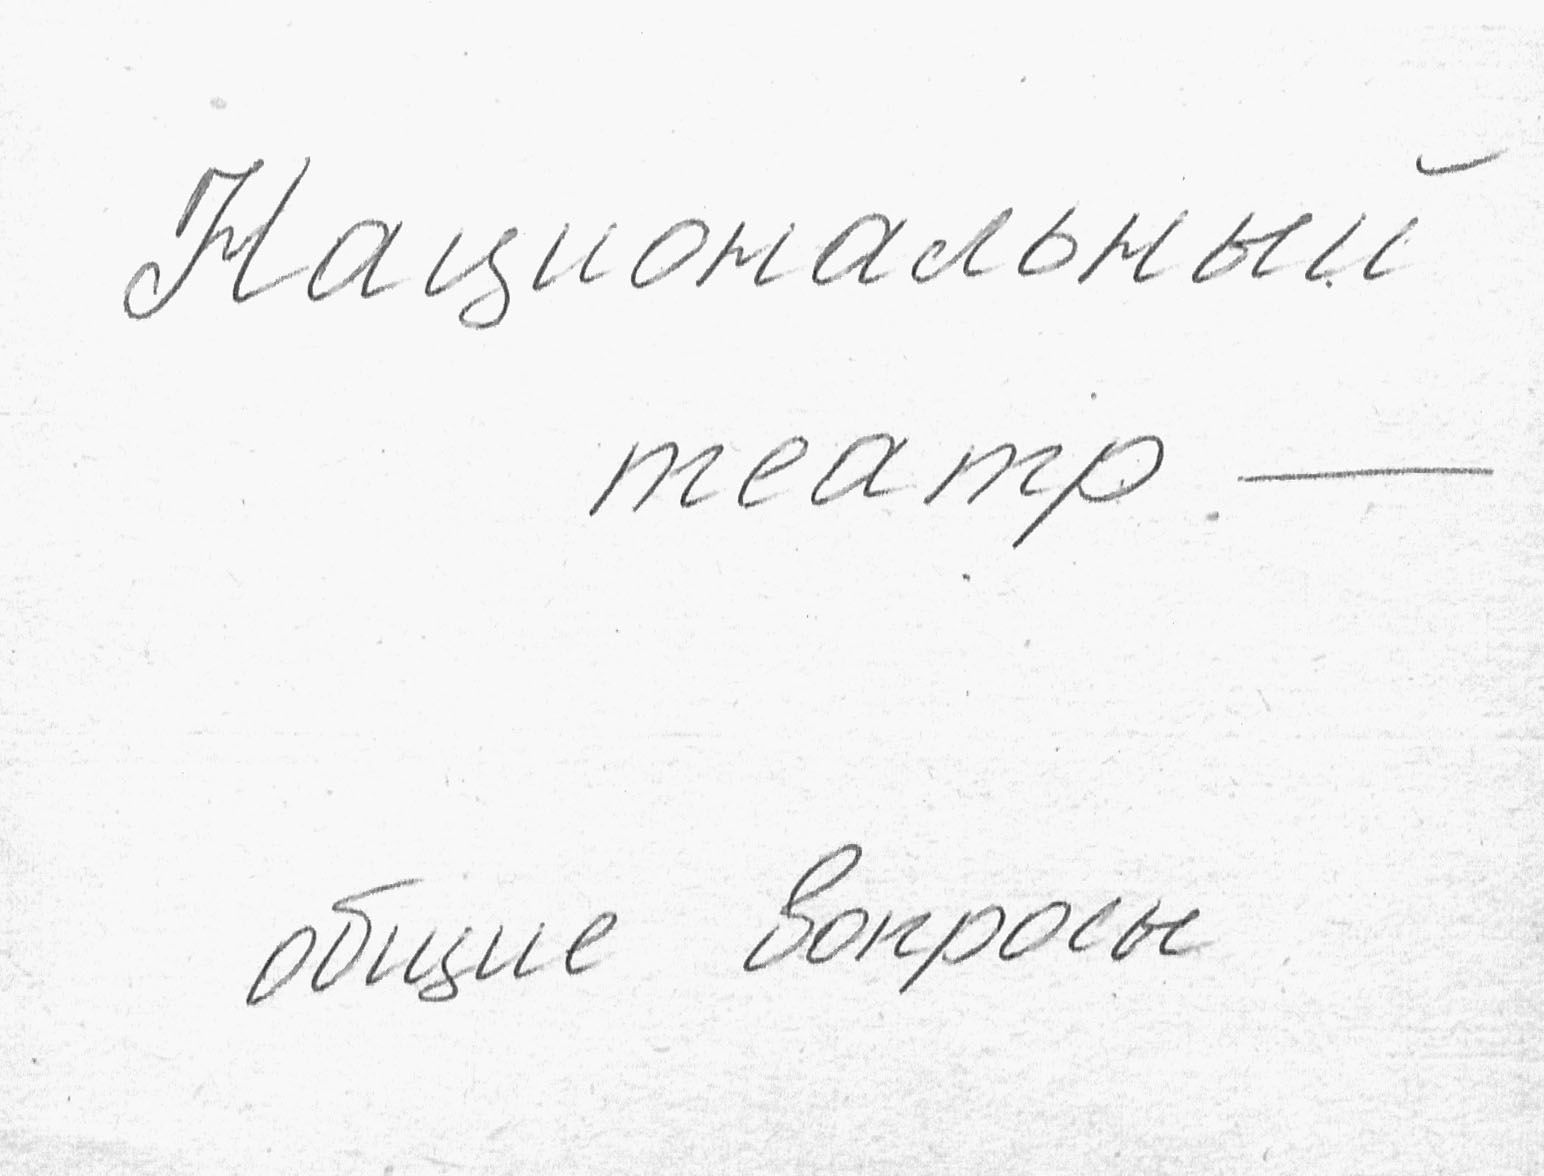 Национальный
театр —
общие вопросы